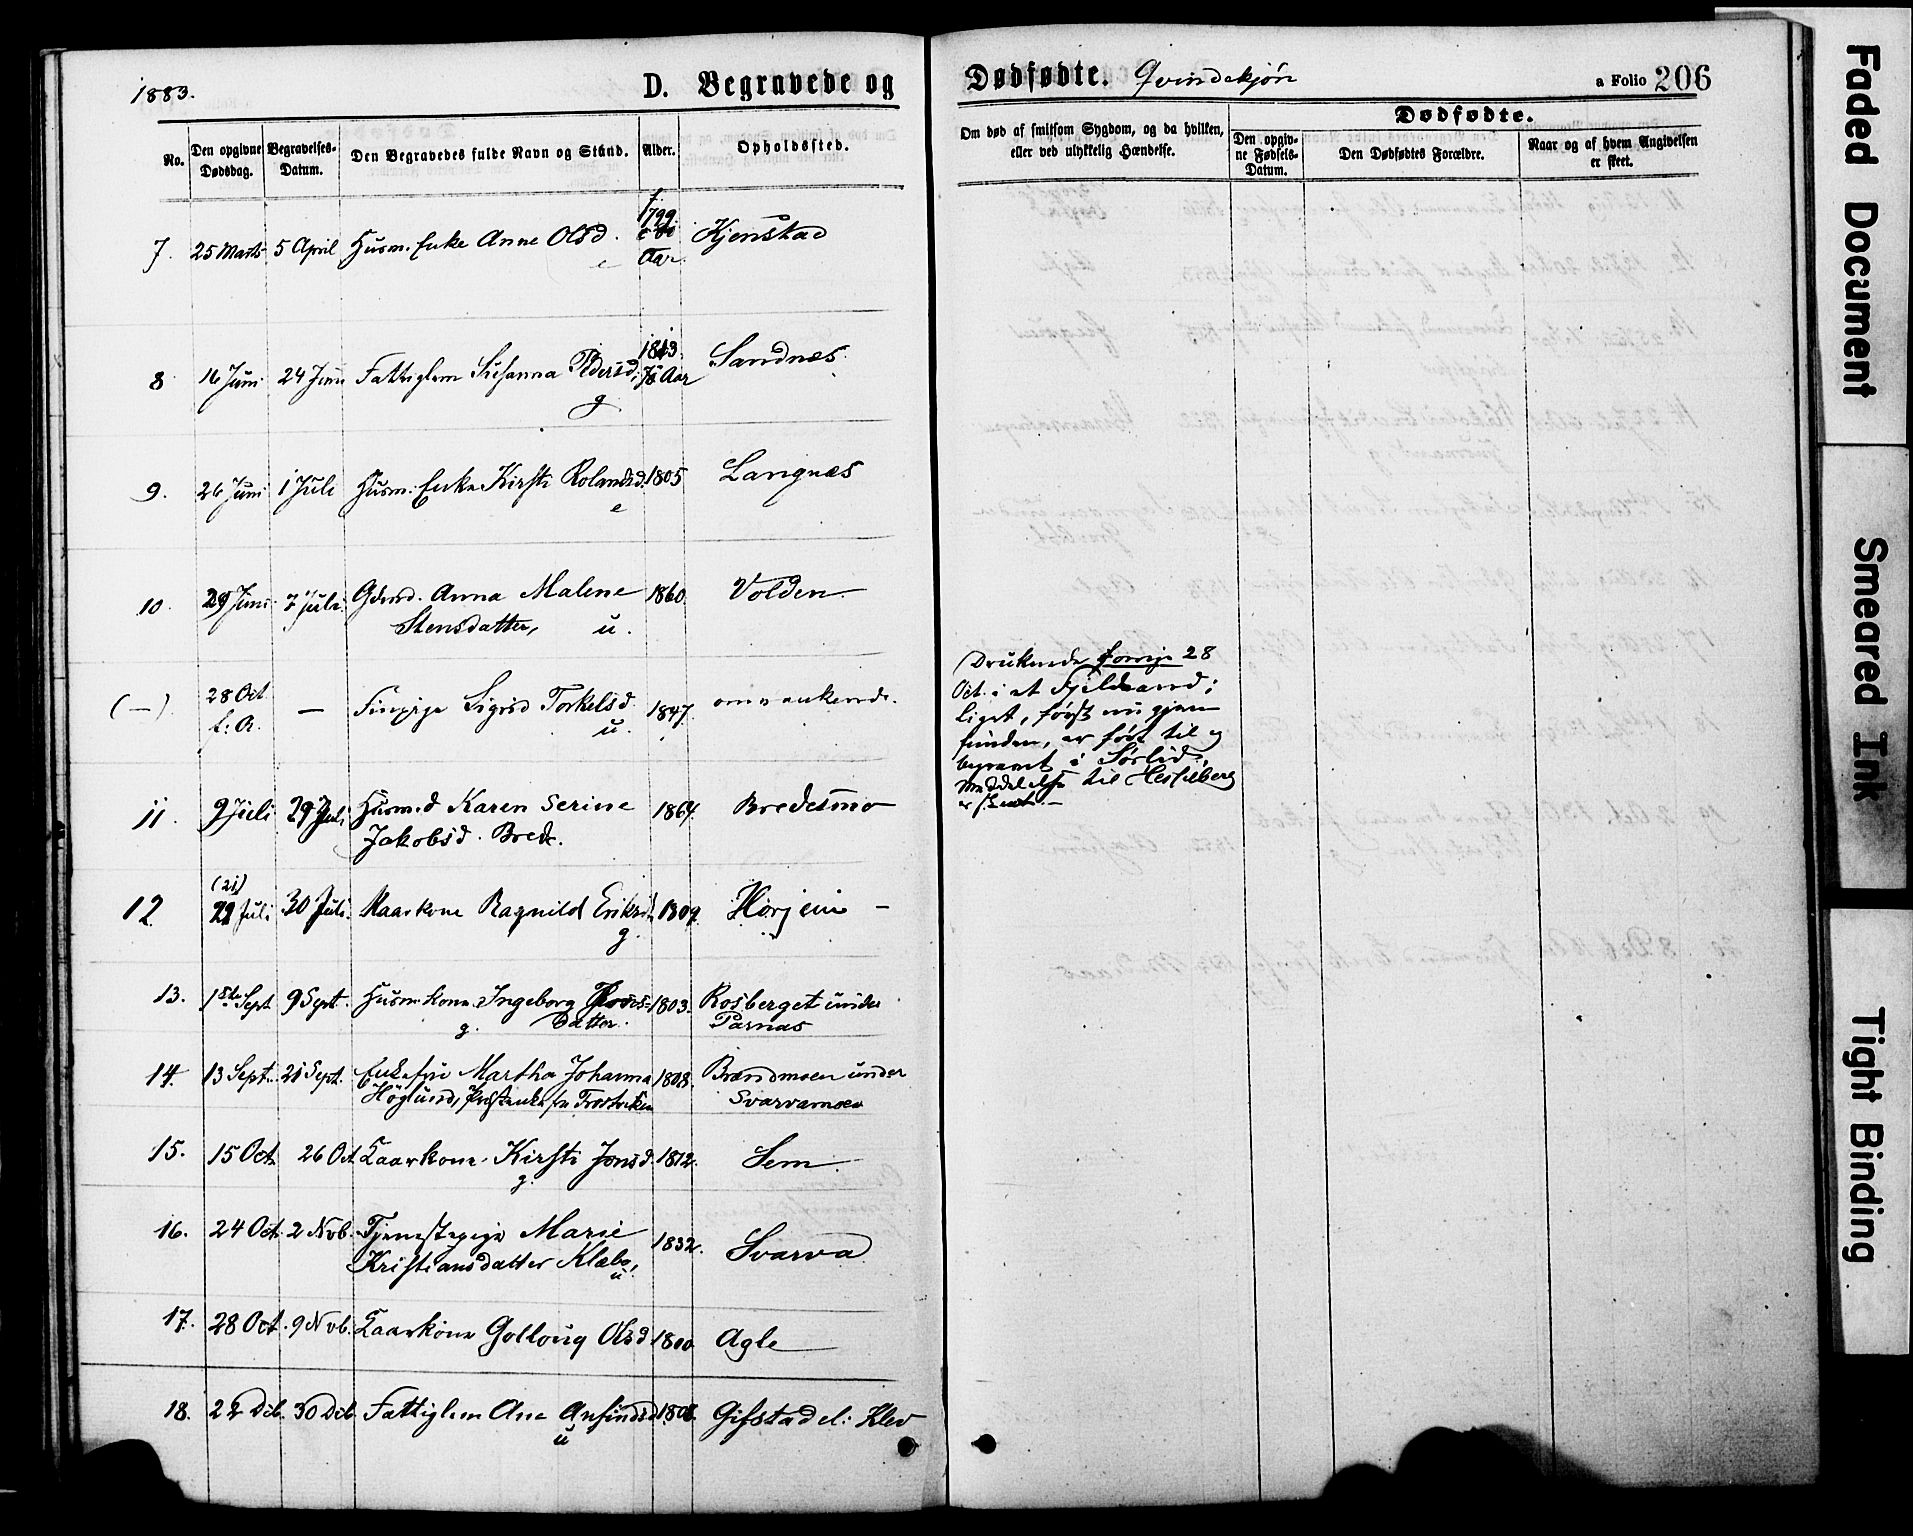 1883.
D. Begravede og
Dødfødte. Qvindekjøn
a Folio 206
No.
Den opgivne Dødsdag.
Begravelses-Datum.
Den Begravedes fulde Navn og Stand.
Alder.
Opholdssted.
Om død af smitsom Sygdom, og da hvilken,
eller ved ulykkelig Hændelse.
Dødfødte.
Den opgiv-
ne Fødsels-
Datum.
Den Dødfødtes Forældre.
Naar og af hvem Angivelsen
er skeet.
7. 25 Marts 5 April Husm. Enke Anne Olsd. e 1799. Aar. Kjenstad
8 16 Juni 24 Juni Fattiglem Susanna Pedersd. g 1813. Aar Sandnæs.
9. 26 Juni 1 Juli Husm. Enke Kirsti Rolandsd. e 1805 Langnæs
10. 29 Juni 7 Juli Gdmd. Anna Malene 1860. Volden
Stensdatter, u.
(—) 28 Oct — Sigrid Torkelsd. 1847. omvankende.
f: A. u.
Druknede forrige 28
Oct. i et Fjeldvand;
Liget, først nu gjen
funden, er ført til og
begravet i Sørlid,
Meddelelse til
er
11. 9 Juli 29 Juli Husm.d Karen Serine 1864. Bredesmo
Jakobsd. Brede.
(21)
12 22 Juli 30 Juli. Kaarkone Ragnild Eriksd. 1809. Horjem —
g.
13. 1ste Sept 9 Sept. Husm. kone Ingeborg 1803. Rosberget under
g. datter. Parnas
14. 13 Sept. 21 Sept. Enkefru Martha Johanna 1808. Brændmoen under
Höglund, Svarvamoen
15. 15 Oct. 26 Oct Kaarkone Kirsti Jonsd. 1812. Sem
g.
16. 24 Oct. 2 Nvb. Tjenestepige Marie 1832. Svarva
Kristiansdatter Klæbo, u.
17. 28 Oct. 9 Nvb. Kaarkone Golloug Olsd 1800. Agle
18. 22 Dcb. 30 Dcb Fattiglem Ane Anfindsd. 1808. Gifstad el: Klev
u
Faded Document
Smeared Ink
Tight Binding